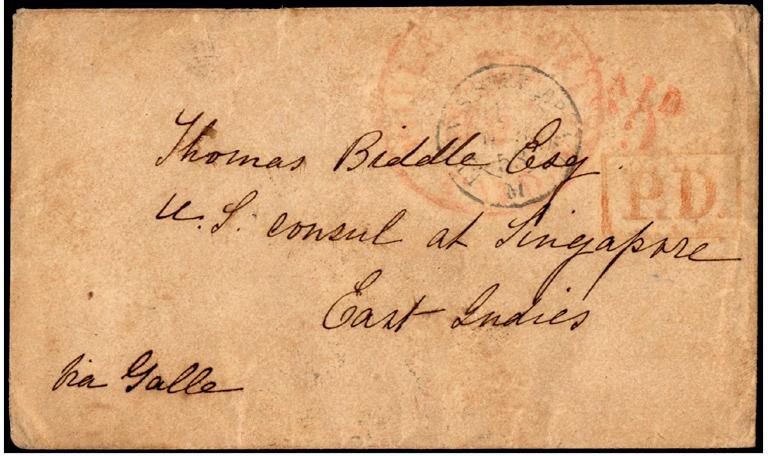 Thomas Biddle Esq
U. S. consul at Singapore
East Indies
via Galle
P.D.